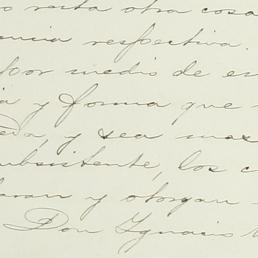 o resta otra cosa
ancia respectiva.
por medio de es
ia y forma que
eda, y sea mas
ubsistente, los c
laran y otorgan
Don Ignacio